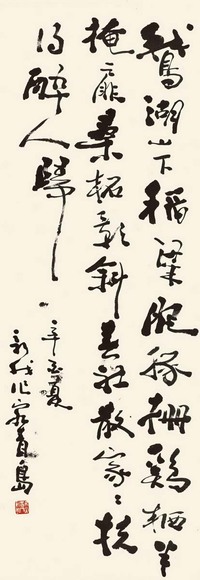 鵝湖山下稻粱肥豚柵鷄栖半
掩扉桑柘影斜春社散家〻扶
得醉人歸
辛夏
青島